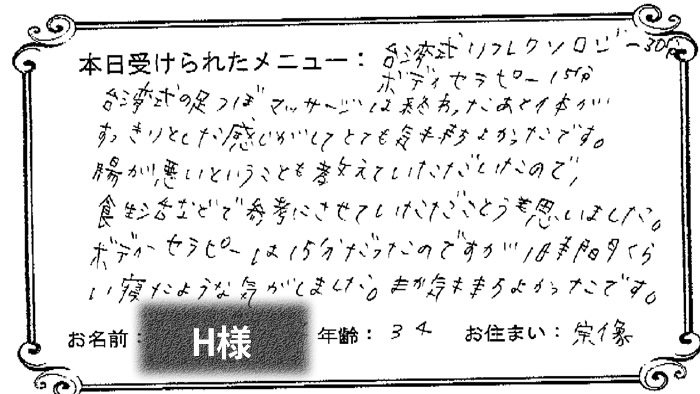 本日受けられたメニュー： 台湾式リフレクソロジー30分
ボディセラピー15分
台湾式の足つぼマッサージは終わったあと体が
すっきりとした感じがしてとても気持ちよかったです。
腸が悪いということも教えていただいたので、
食生活などで参考にさせていただこうと思いました。
ボディーセラピーは15分だったのですが1時間くら
い寝たような気がしました。気持ちよかったです。
お名前： H様 年齢：34 お住まい：宗像